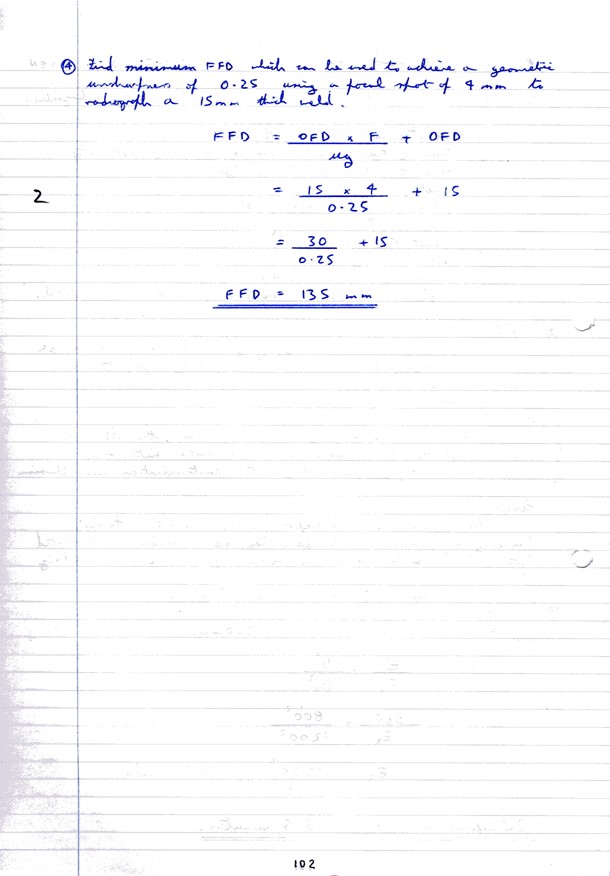 ④ Find minimum FFD which can be used to achieve a geometric
unsharpness of 0.25 using a focal spot of 4 mm to
radiograph a 15mm thick weld.
FFD = OFD x F / ug + OFD
2
= 15 x 4 / 0.25 + 15
= 30 / 0.25 + 15
FFD = 135 mm
102